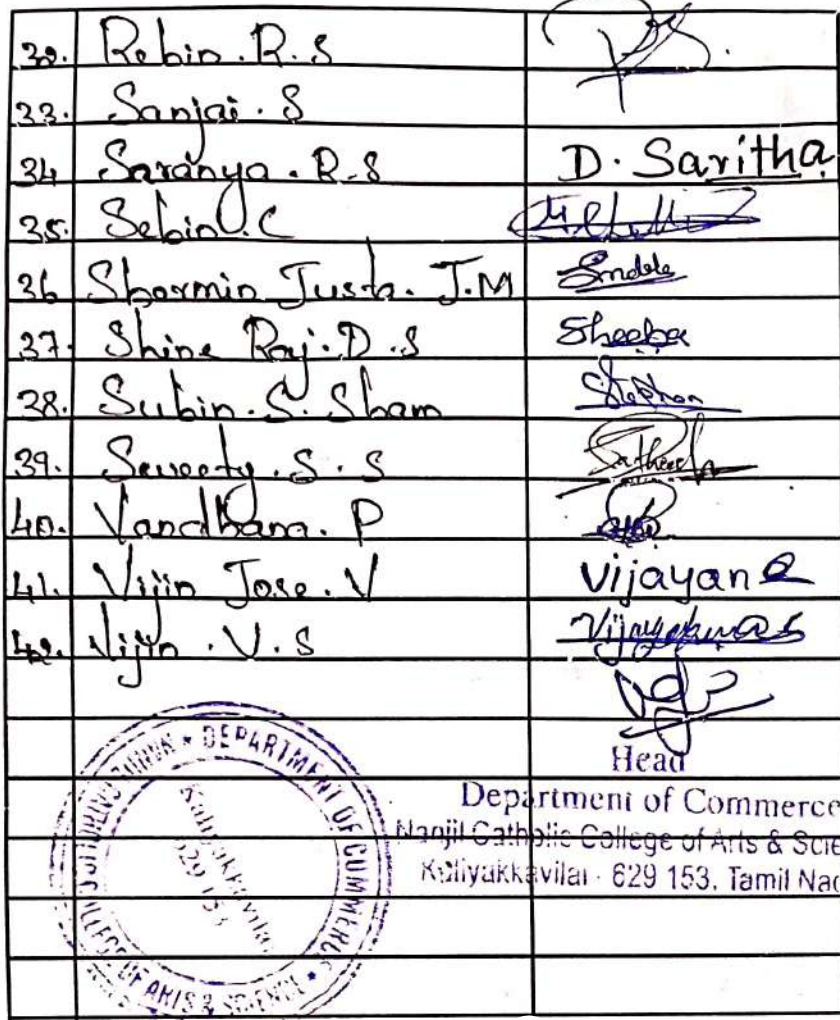 32. Robin. R. S
33. Sanjai. S
34 Saranya. R. S D. Saritha
35. Sebin. C
36 Sharmin Justa. J.M
37. Shine Raj. D. S Sheeba
38. Subin. S. Sham Stephen
39. Seweety. S. S
40. Vandhana. P
41. Vijin Jose. V Vijayan
42. Vijin. V. S
Head
Department of Commerce
Nanjil Catholic College of Arts & Scie
Kaliyakkavilai - 629 153, Tamil Nad
DEPARTMENT OF COMMERCE
COLLEGE OF ARTS & SCIENCE
Kaliyakkavilai
629 153